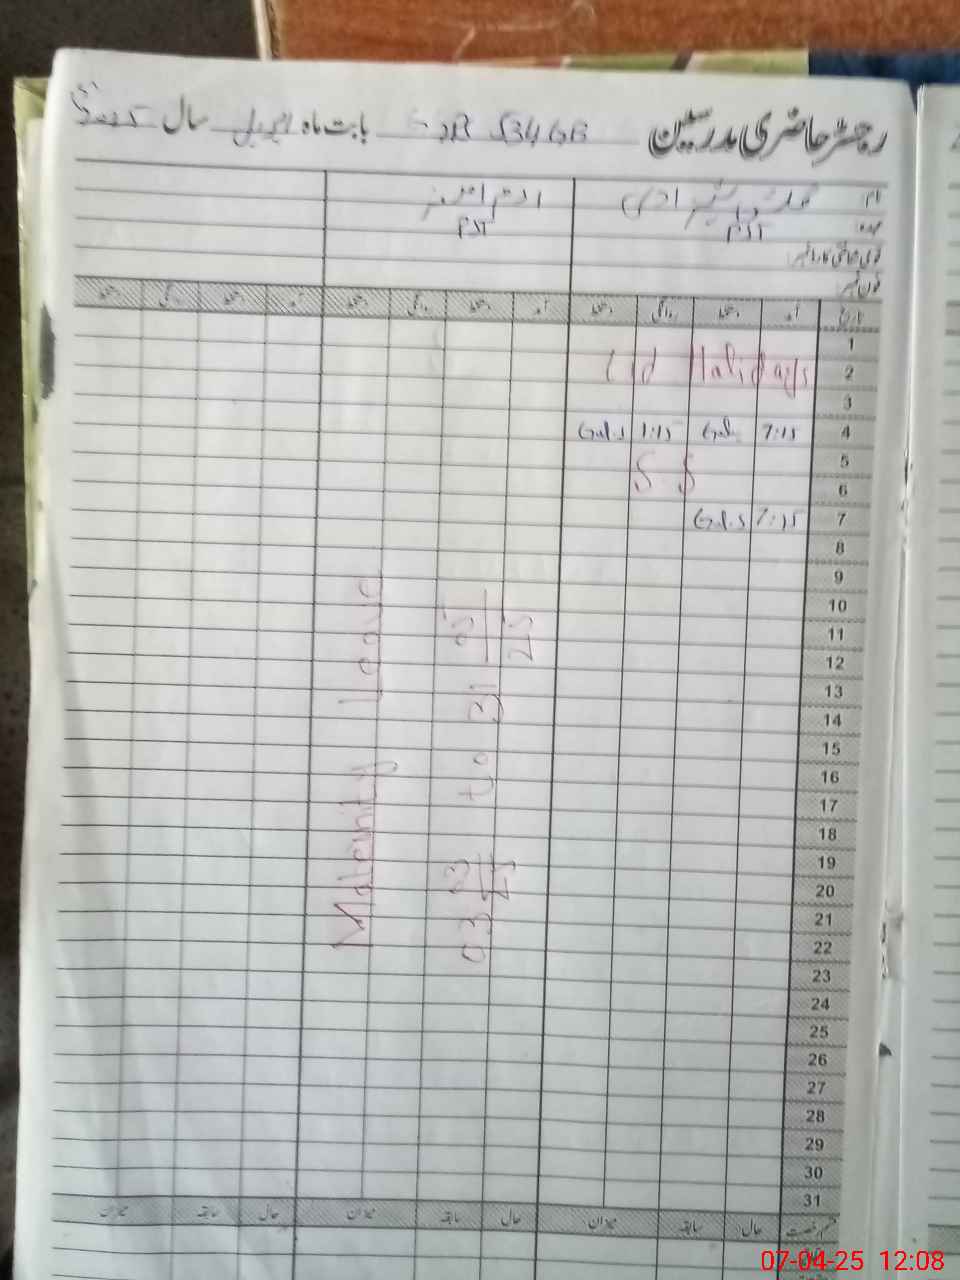 رجسٹر حاضری مدرسین 534 GB بابت ماہ اپریل سال
نام
عہدہ PST PST
قومی شناختی کارڈ نمبر
فون نمبر
تاریخ آمد دستخط روانگی دستخط آمد دستخط روانگی دستخط آمد دستخط روانگی دستخط
1
2 Eid Holidays
3
4 7:15 1:15
5
6
7 7:15
8
9
10
11
12
13
14
15
16
17
18
19
20
21
22
23
24
25
26
27
28
29
30
31
Maternity Leave
03 03/25 to 31 05/25
قسم رخصت حال سابقہ میزان حال سابقہ میزان حال سابقہ میزان
07-04-25 12:08